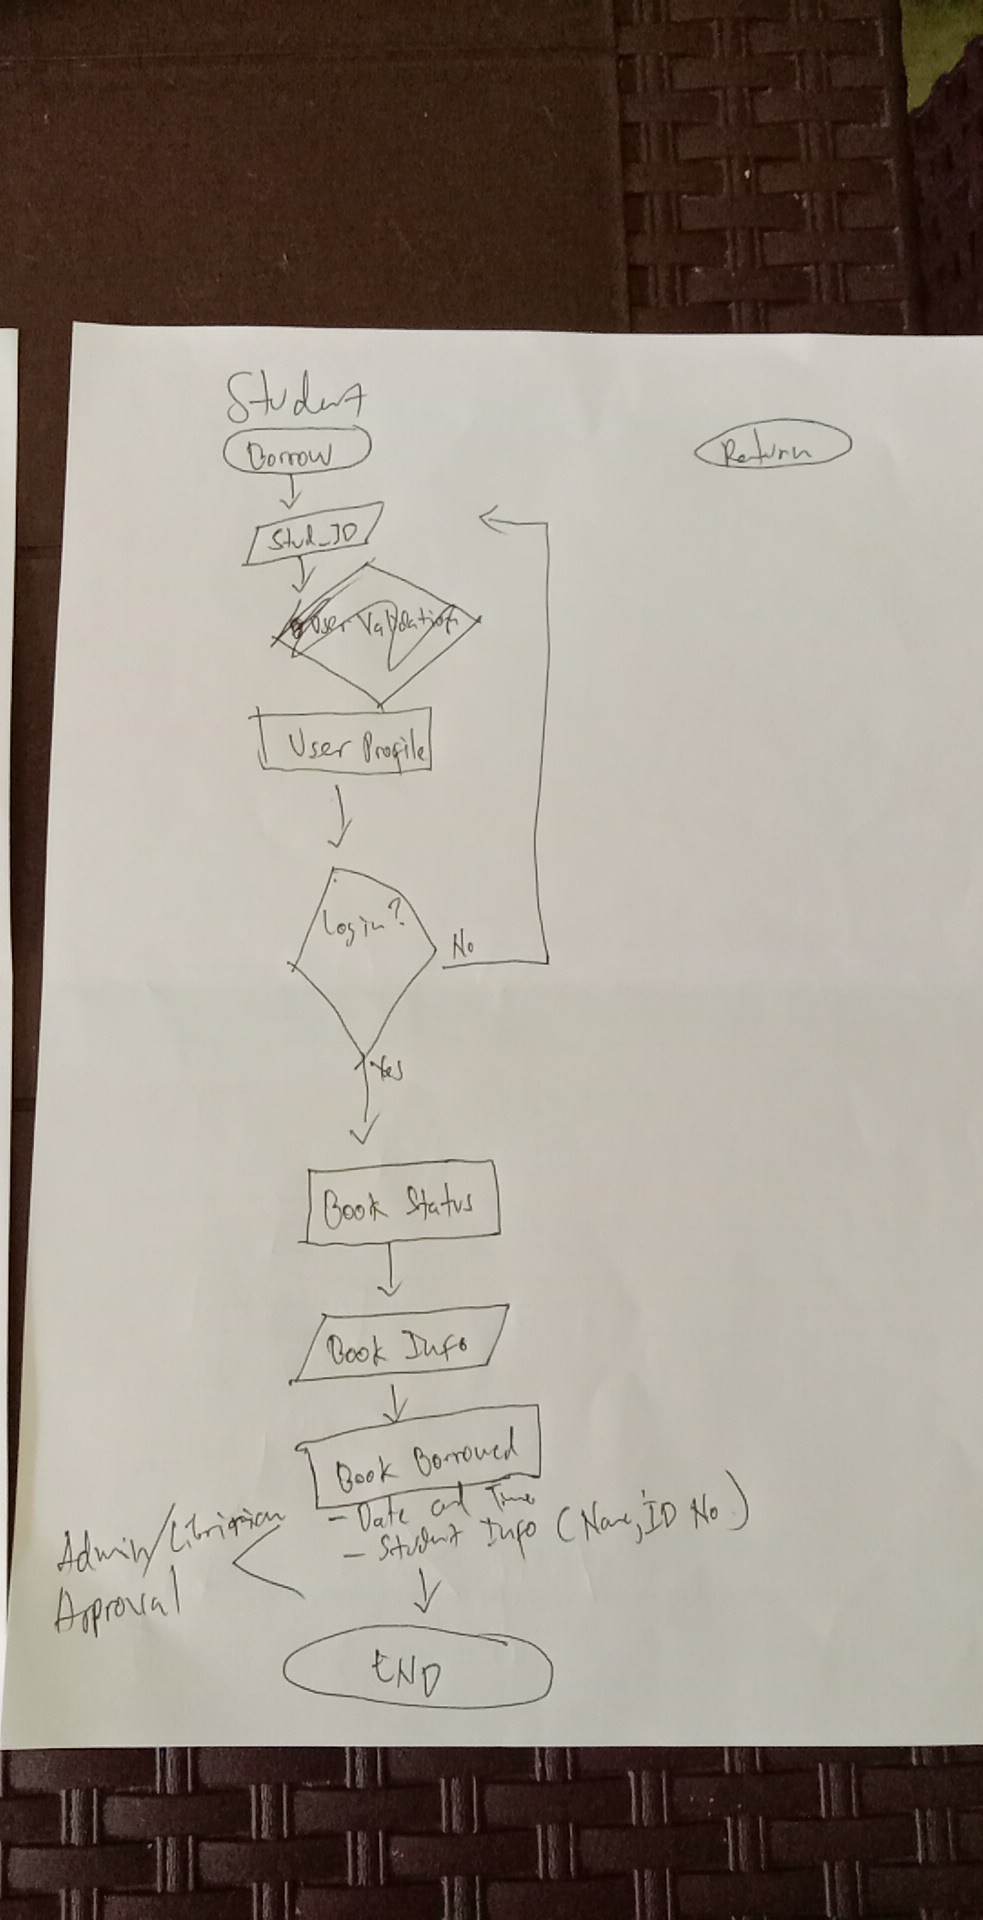 Student
Borrow
Return
Stud_ID
User Validation
User Profile
Login?
No
Yes
Book Status
Book Info
Book Borrowed
- Date and Time
- Student Info (Name, ID No.)
Admin/Librarian
Approval
END